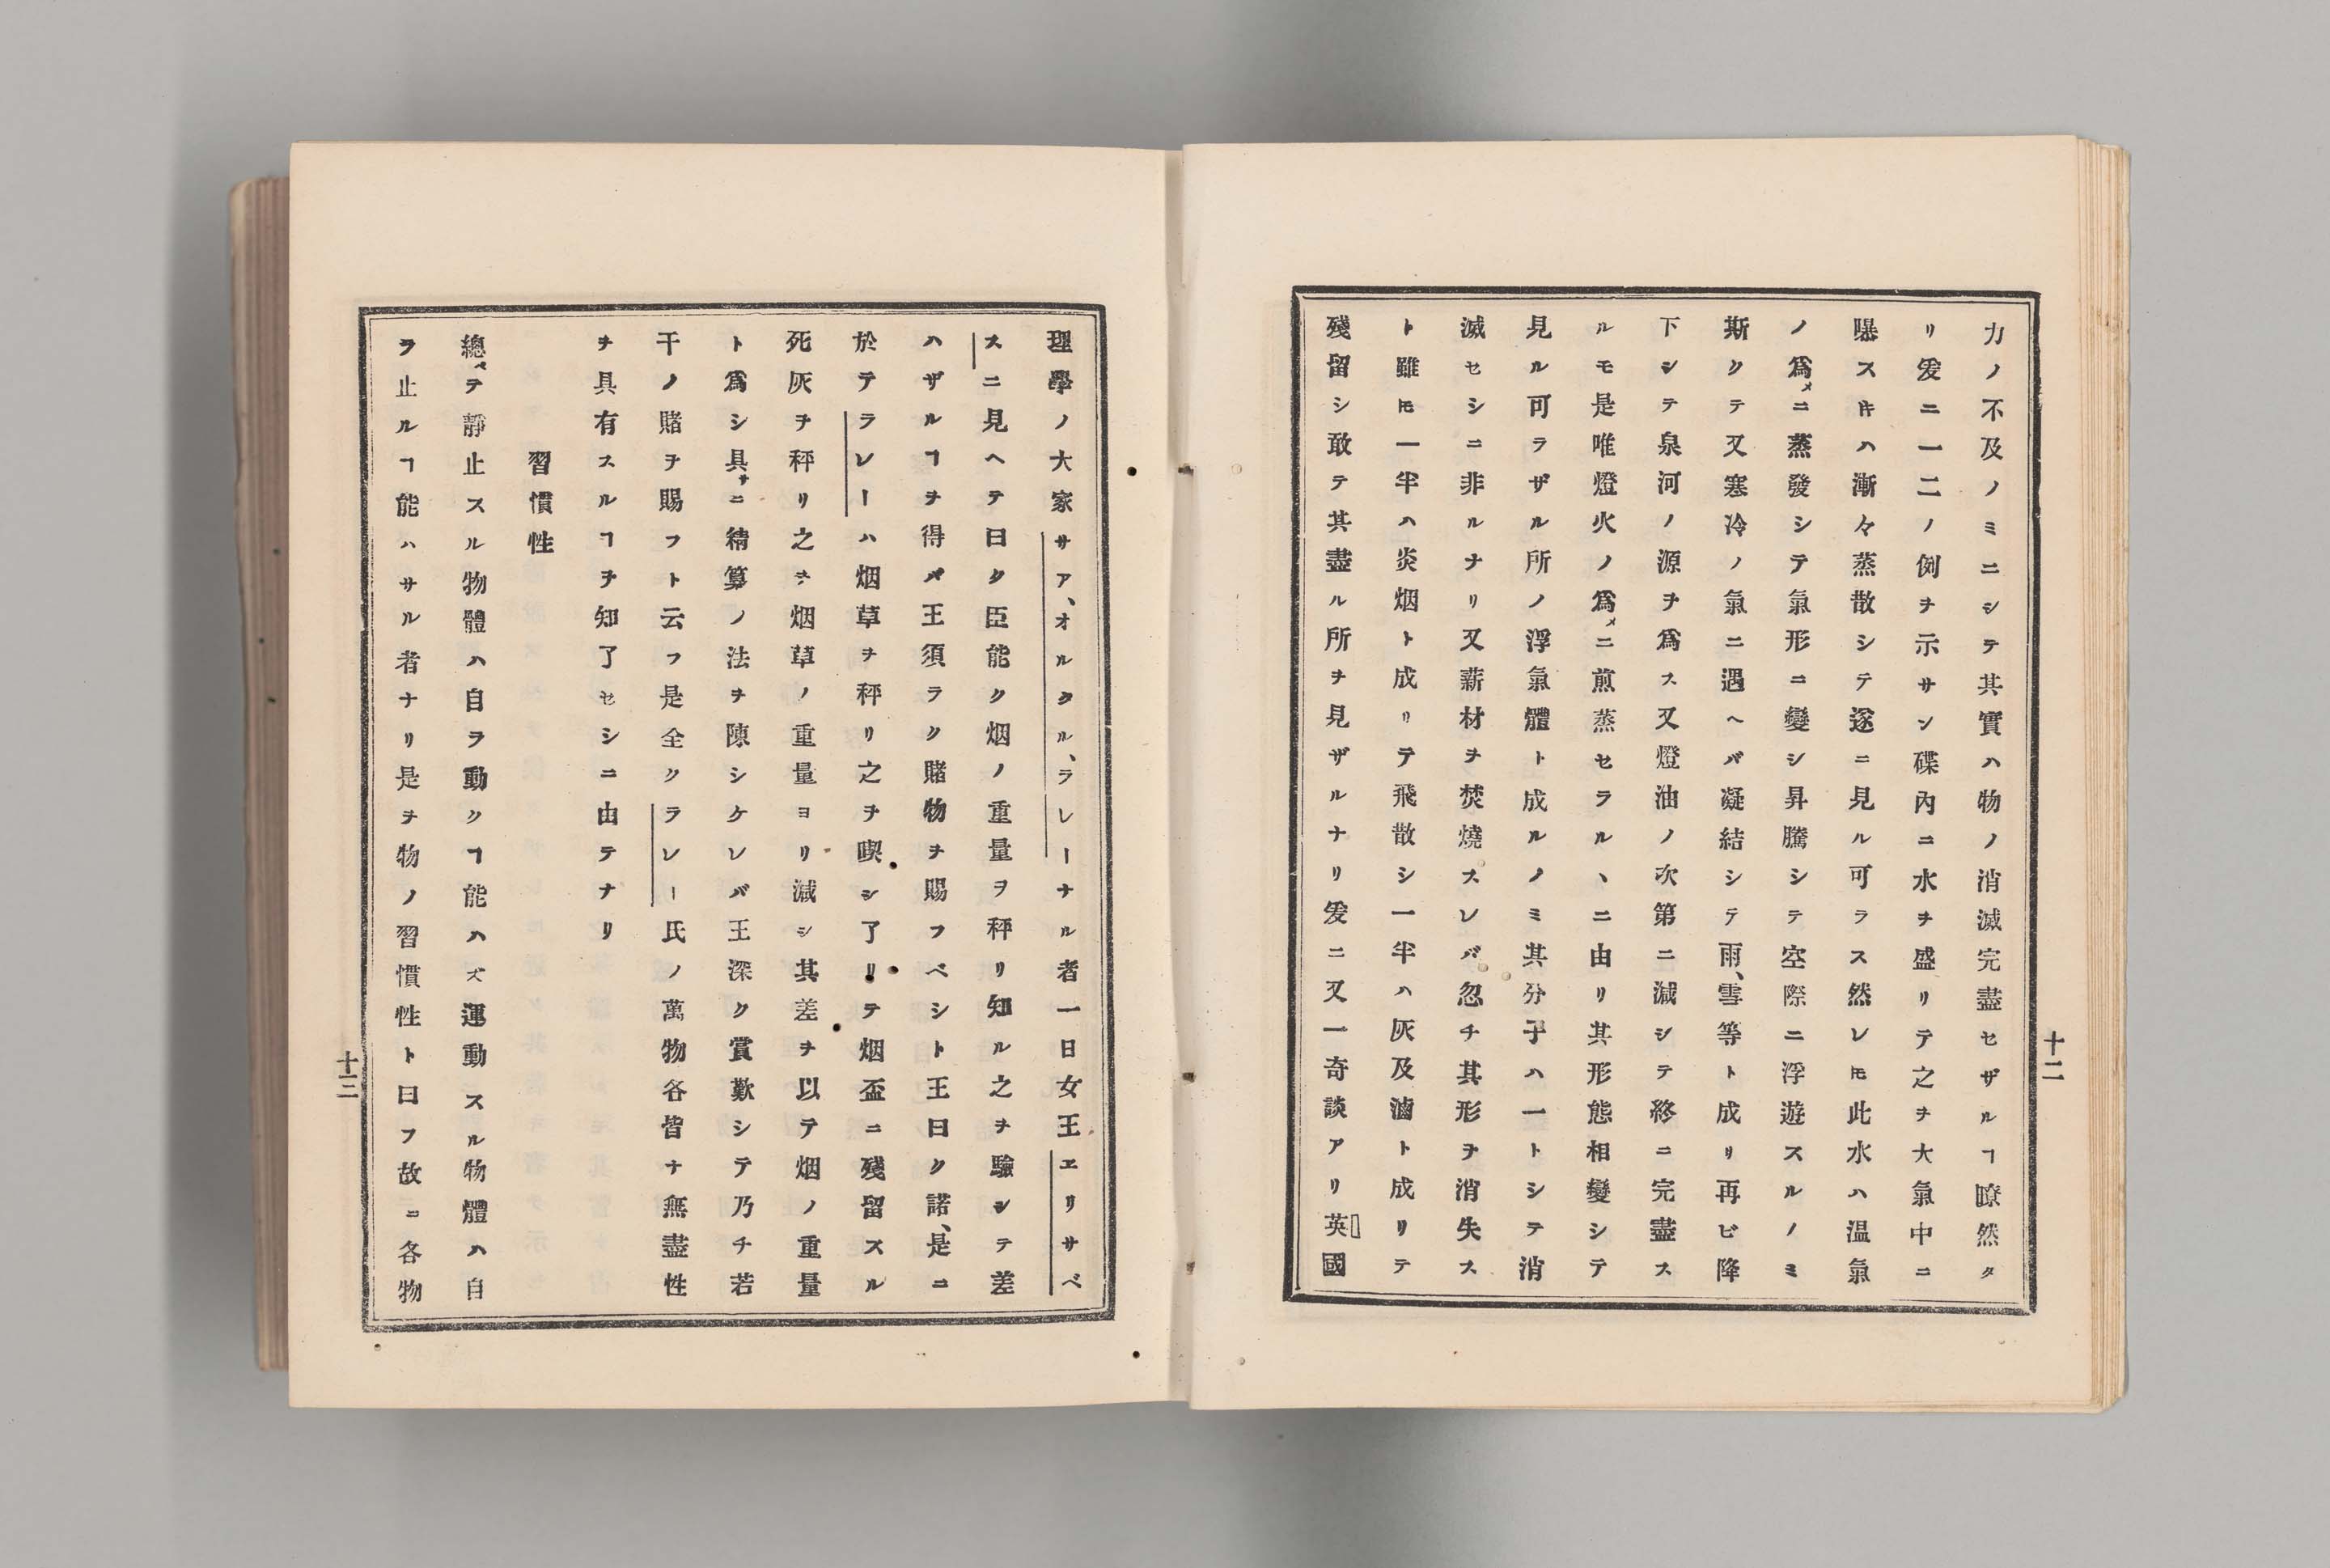 力ノ不及ノミニシテ其實ハ物ノ消滅完盡セザルヿ瞭然タ
リ爰ニ一二ノ例ヲ示サン碟內ニ水ヲ盛リテ之ヲ大氣中ニ
曝スㇵ漸々蒸散シテ遂ニ見ル可ラス然レ𪜈此水ハ温氣
ノ爲メニ蒸發シテ氣形ニ變シ昇騰シテ空際ニ浮遊スルノミ
斯クテ又寒冷ノ氣ニ遇ヘバ凝結シテ雨、雪等ト成リ再ビ降
下シテ泉河ノ源ヲ爲ス又燈油ノ次第ニ減シテ終ニ完盡ス
ルモ是唯燈火ノ爲メニ煎蒸セラルヽニ由リ其形態相變シテ
見ル可ラザル所ノ浮氣體ト成ルノミ其分子ハ一トシテ消
滅セシニ非ルナリ又薪材ヲ焚燒スレバ忽チ其形ヲ消失ス
ト雖𪜈一半ハ炎烟ト成リテ飛散シ一半ハ灰及滷ト成リテ
殘留シ敢テ其盡ル所ヲ見ザルナリ爰ニ又一奇談アリ英國
十二
理學ノ大家サア、オルタル、ラレーナル者一日女王ヱリサベ
スニ見ヘテ曰ク臣能ク烟ノ重量ヲ秤リ知ル之ヲ驗シテ差
ハザルヿヲ得バ王須ラク賭物ヲ賜フベシト王曰ク諾、是ニ
於テラレーハ烟草ヲ秤リ之ヲ喫シ了リテ烟盃ニ殘留スル
死灰ヲ秤リ之ヲ烟草ノ重量ヨリ減シ其差ヲ以テ烟ノ重量
ト爲シ具サニ精算ノ法ヲ陳シケレバ王深ク賞歎シテ乃チ若
干ノ賭ヲ賜フト云フ是全クラレー氏ノ萬物各皆ナ無盡性
ヲ具有スルヿヲ知了セシニ由テナリ
習慣性
總ベテ靜止スル物體ハ自ラ動クヿ能ハズ運動スル物體ハ自
ラ止ルヿ能ハサル者ナリ是ヲ物ノ習慣性ト曰フ故ニ各物
十三